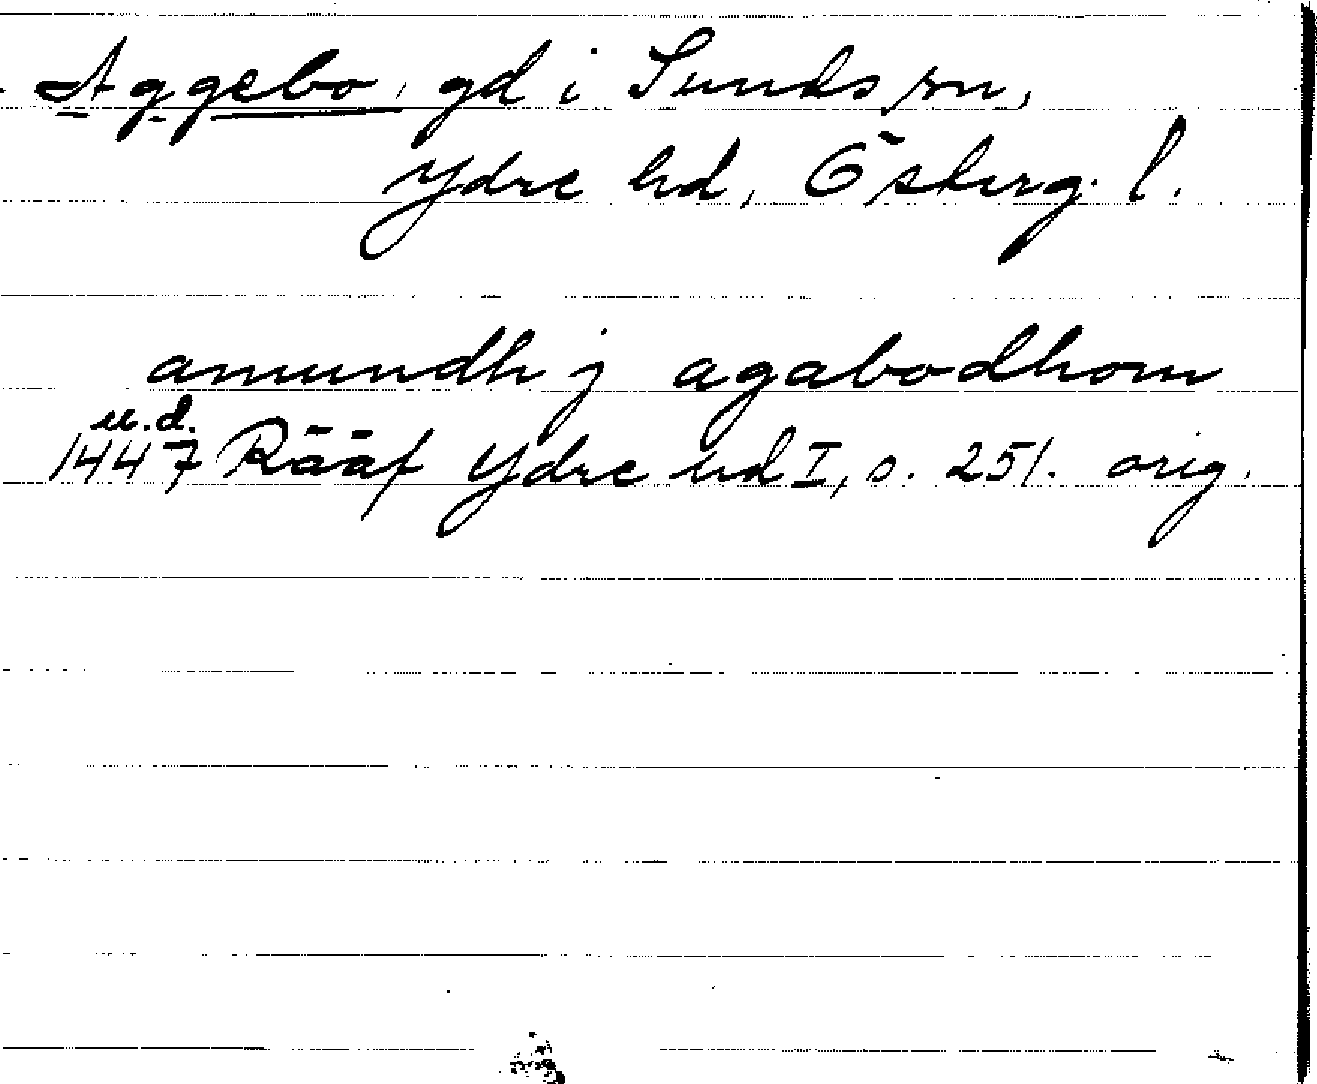 Aggebo, gd i Sunds sn,
Ydre hd, Östterg. l.
amundh j agabodhom
u.d.
1447 Rääf Ydre hd I, s. 251. orig.